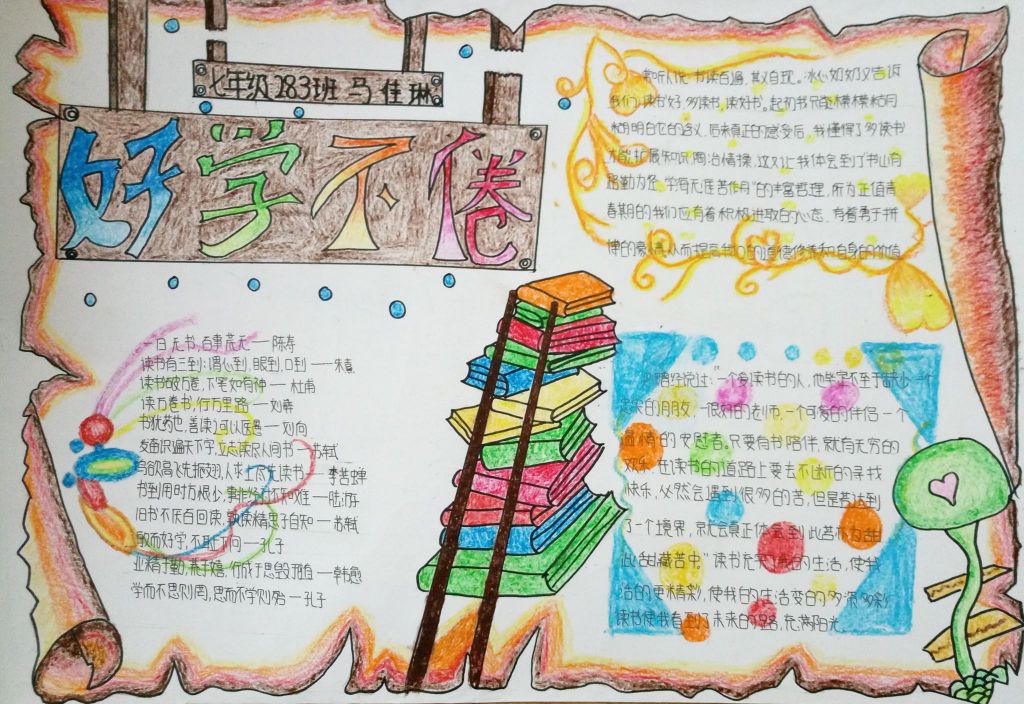 七年级283班 马佳琳
好学不倦
常听人说,书读百遍,其义自现。冰心奶奶又告诉
我们:读书好,多读书,读好书。起初我只能模模糊糊
明白它的含义,后来真正的感受后,我懂得了多读书
才能扩展知识,陶冶情操,这又让我体会到了"书山有
路勤为径,学海无涯苦作舟"的丰富哲理,所为正值青
春期的我们应有着积极进取的心态,有着勇于拼
博的豪情,从而提高我们的道德修养和自身的价值
一日无书,百事荒无——陈寿
读书有三到:谓心到,眼到,口到——朱熹
读书破万卷,下笔如有神——杜甫
读万卷书,行万里路——刘彝
书犹药也,善读可以医愚——刘向
发奋识遍天下字,立志读尽人间书——苏轼
鸟欲高飞先振翅,人求上尽先读书——李苦蝉
书到用时方恨少,事非经过不知难——陆游
旧书不厌百回读,熟读精思子自知——苏轼
敏而好学,不耻下问——孔子
业精于勤,荒于嬉,行成于思毁于随——韩愈
学而不思则罔,思而不学则殆——孔子
曾经说过:"一个爱读书的人,他必定不至于缺少一个
的朋友,一很好的老师,一个可爱的伴侣,一个
情的安慰者。只要有书陪伴就有无穷的
欢乐,在读书的道路上要去不断的寻找
快乐,必然会遇到很多的苦,但是若达到
了一个境界,就会真正体会到"此苦称为甜
此甜藏苦中"读书充实了我的生活,使我
活的更精彩,使我的生活变的多姿多彩
读书使我看到了未来的路,充满阳光。